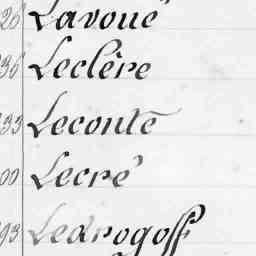 26 Lavoué
36 Leclère
33 Leconte
00 Lecré
93 Ledrogoff